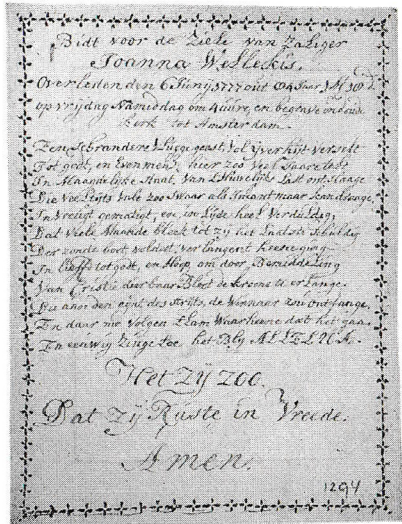 Bidt voor de Ziele van Zaliger
Joanna Wellekis.
Overleden den 6 Juny 1777 out 64 Jaar
op vrijdag Namiddag om 4 uure, en begrave in oude
kerk tot Amsterdam.
Een Schrandere geest, vol Yver
Tot godt, en Evenmens, hier zoo veel Jaare
In Maagdelijke Staat, van 't Huwelijks Last ontslaage
Die zoo Swaar als Imant maar kan draage,
In Vreugt gematigt, en, in Lyde heel Verduldig,
Dat Veele Maande bleek tot zij het Laatste Schuldig
Der zonde
In Liefde tot godt, en Hoop, om door Bemiddeling
Van Cristi dierbaar Bloet de kroone te
Die naar den eynt des Strits, de Winnaar zou ontfange.
En daar me Volgen t Lam Waar heene dat het gaa.
En eeuwig Zinge toe het Bly ALLELUA.
Het Zij Zoo.
Dat Zij Ruste in Vreede.
Amen.
1294